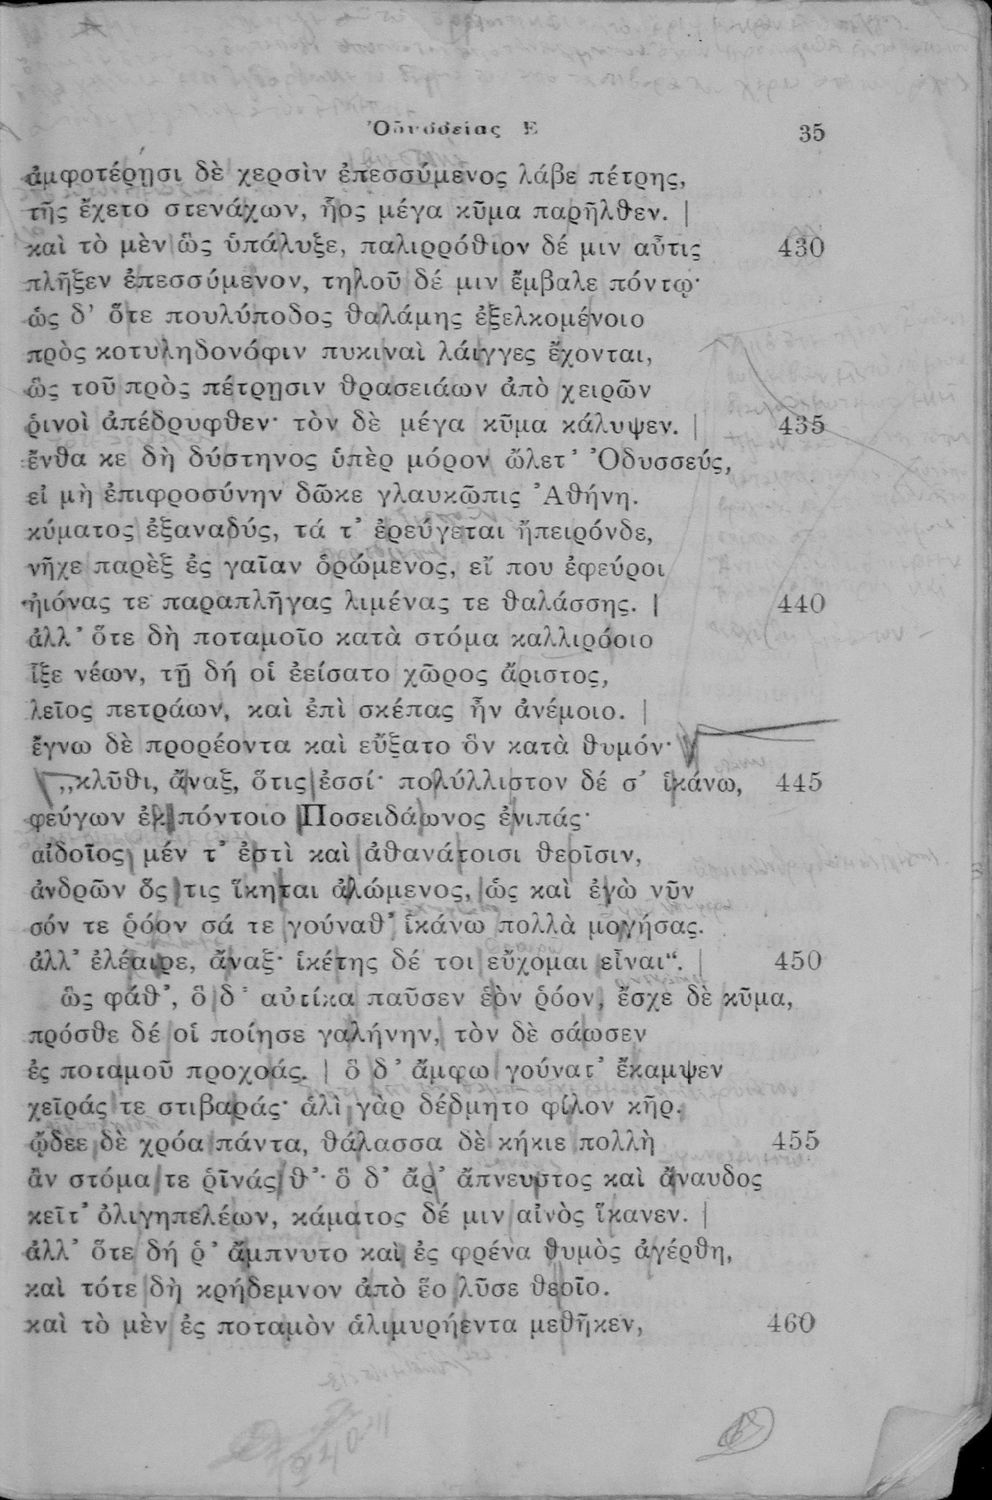 Ὀδυσσείας Ε 35
ἀμφοτέρῃσι δὲ χερσὶν ἐπεσσύμενος λάβε πέτρης,
τῆς ἔχετο στενάχων, ἧος μέγα κῦμα παρῆλθεν. |
καὶ τὸ μὲν ὣς ὑπάλυξε, παλιρρόθιον δέ μιν αὖτις 430
πλῆξεν ἐπεσσύμενον, τηλοῦ δέ μιν ἔμβαλε πόντῳ·
ὡς δ’ ὅτε πουλύποδος θαλάμης ἐξελκομένοιο
πρὸς κοτυληδονόφιν πυκιναὶ λάιγγες ἔχονται,
ὣς τοῦ πρὸς πέτρῃσιν θρασειάων ἀπὸ χειρῶν
ῥινοὶ ἀπέδρυφθεν· τὸν δὲ μέγα κῦμα κάλυψεν. | 435
ἔνθα κε δὴ δύστηνος ὑπὲρ μόρον ὤλετ’ Ὀδυσσεύς,
εἰ μὴ ἐπιφροσύνην δῶκε γλαυκῶπις Ἀθήνη.
κύματος ἐξαναδύς, τά τ’ ἐρεύγεται ἤπειρόνδε,
νῆχε παρὲξ ἐς γαῖαν ὁρώμενος, εἴ που ἐφεύροι
ἠιόνας τε παραπλῆγας λιμένας τε θαλάσσης. | 440
ἀλλ’ ὅτε δὴ ποταμοῖο κατὰ στόμα καλλιρόοιο
ἷξε νέων, τῇ δή οἱ ἐείσατο χῶρος ἄριστος,
λεῖος πετράων, καὶ ἐπὶ σκέπας ἦν ἀνέμοιο. |
ἔγνω δὲ προρέοντα καὶ εὔξατο ὃν κατὰ θυμόν·
„κλῦθι, ἄναξ, ὅτις ἐσσί· πολύλλιστον δέ σ’ ἱκάνω, 445
φεύγων ἐκ πόντοιο Ποσειδάωνος ἐνιπάς·
αἰδοῖος μέν τ’ ἐστὶ καὶ ἀθανάτοισι θεοῖσιν,
ἀνδρῶν ὅς τις ἵκηται ἀλώμενος, ὡς καὶ ἐγὼ νῦν
σόν τε ῥόον σά τε γούναθ’ ἱκάνω πολλὰ μογήσας.
ἀλλ’ ἐλέαιρε, ἄναξ· ἱκέτης δέ τοι εὔχομαι εἶναι“. | 450
ὣς φάθ’, ὃ δ’ αὐτίκα παῦσεν ἑὸν ῥόον, ἔσχε δὲ κῦμα,
πρόσθε δέ οἱ ποίησε γαλήνην, τὸν δὲ σάωσεν
ἐς ποταμοῦ προχοάς. | ὃ δ’ ἄμφω γούνατ’ ἔκαμψεν
χεῖράς τε στιβαράς· ἁλὶ γὰρ δέδμητο φίλον κῆρ.
ᾤδεε δὲ χρόα πάντα, θάλασσα δὲ κήκιε πολλὴ 455
ἂν στόμα τε ῥῖνάς θ’· ὃ δ’ ἄρ’ ἄπνευστος καὶ ἄναυδος
κεῖτ’ ὀλιγηπελέων, κάματος δέ μιν αἰνὸς ἵκανεν. |
ἀλλ’ ὅτε δή ῥ’ ἄμπνυτο καὶ ἐς φρένα θυμὸς ἀγέρθη,
καὶ τότε δὴ κρήδεμνον ἀπὸ ἕο λῦσε θεοῖο.
καὶ τὸ μὲν ἐς ποταμὸν ἁλιμυρήεντα μεθῆκεν, 460